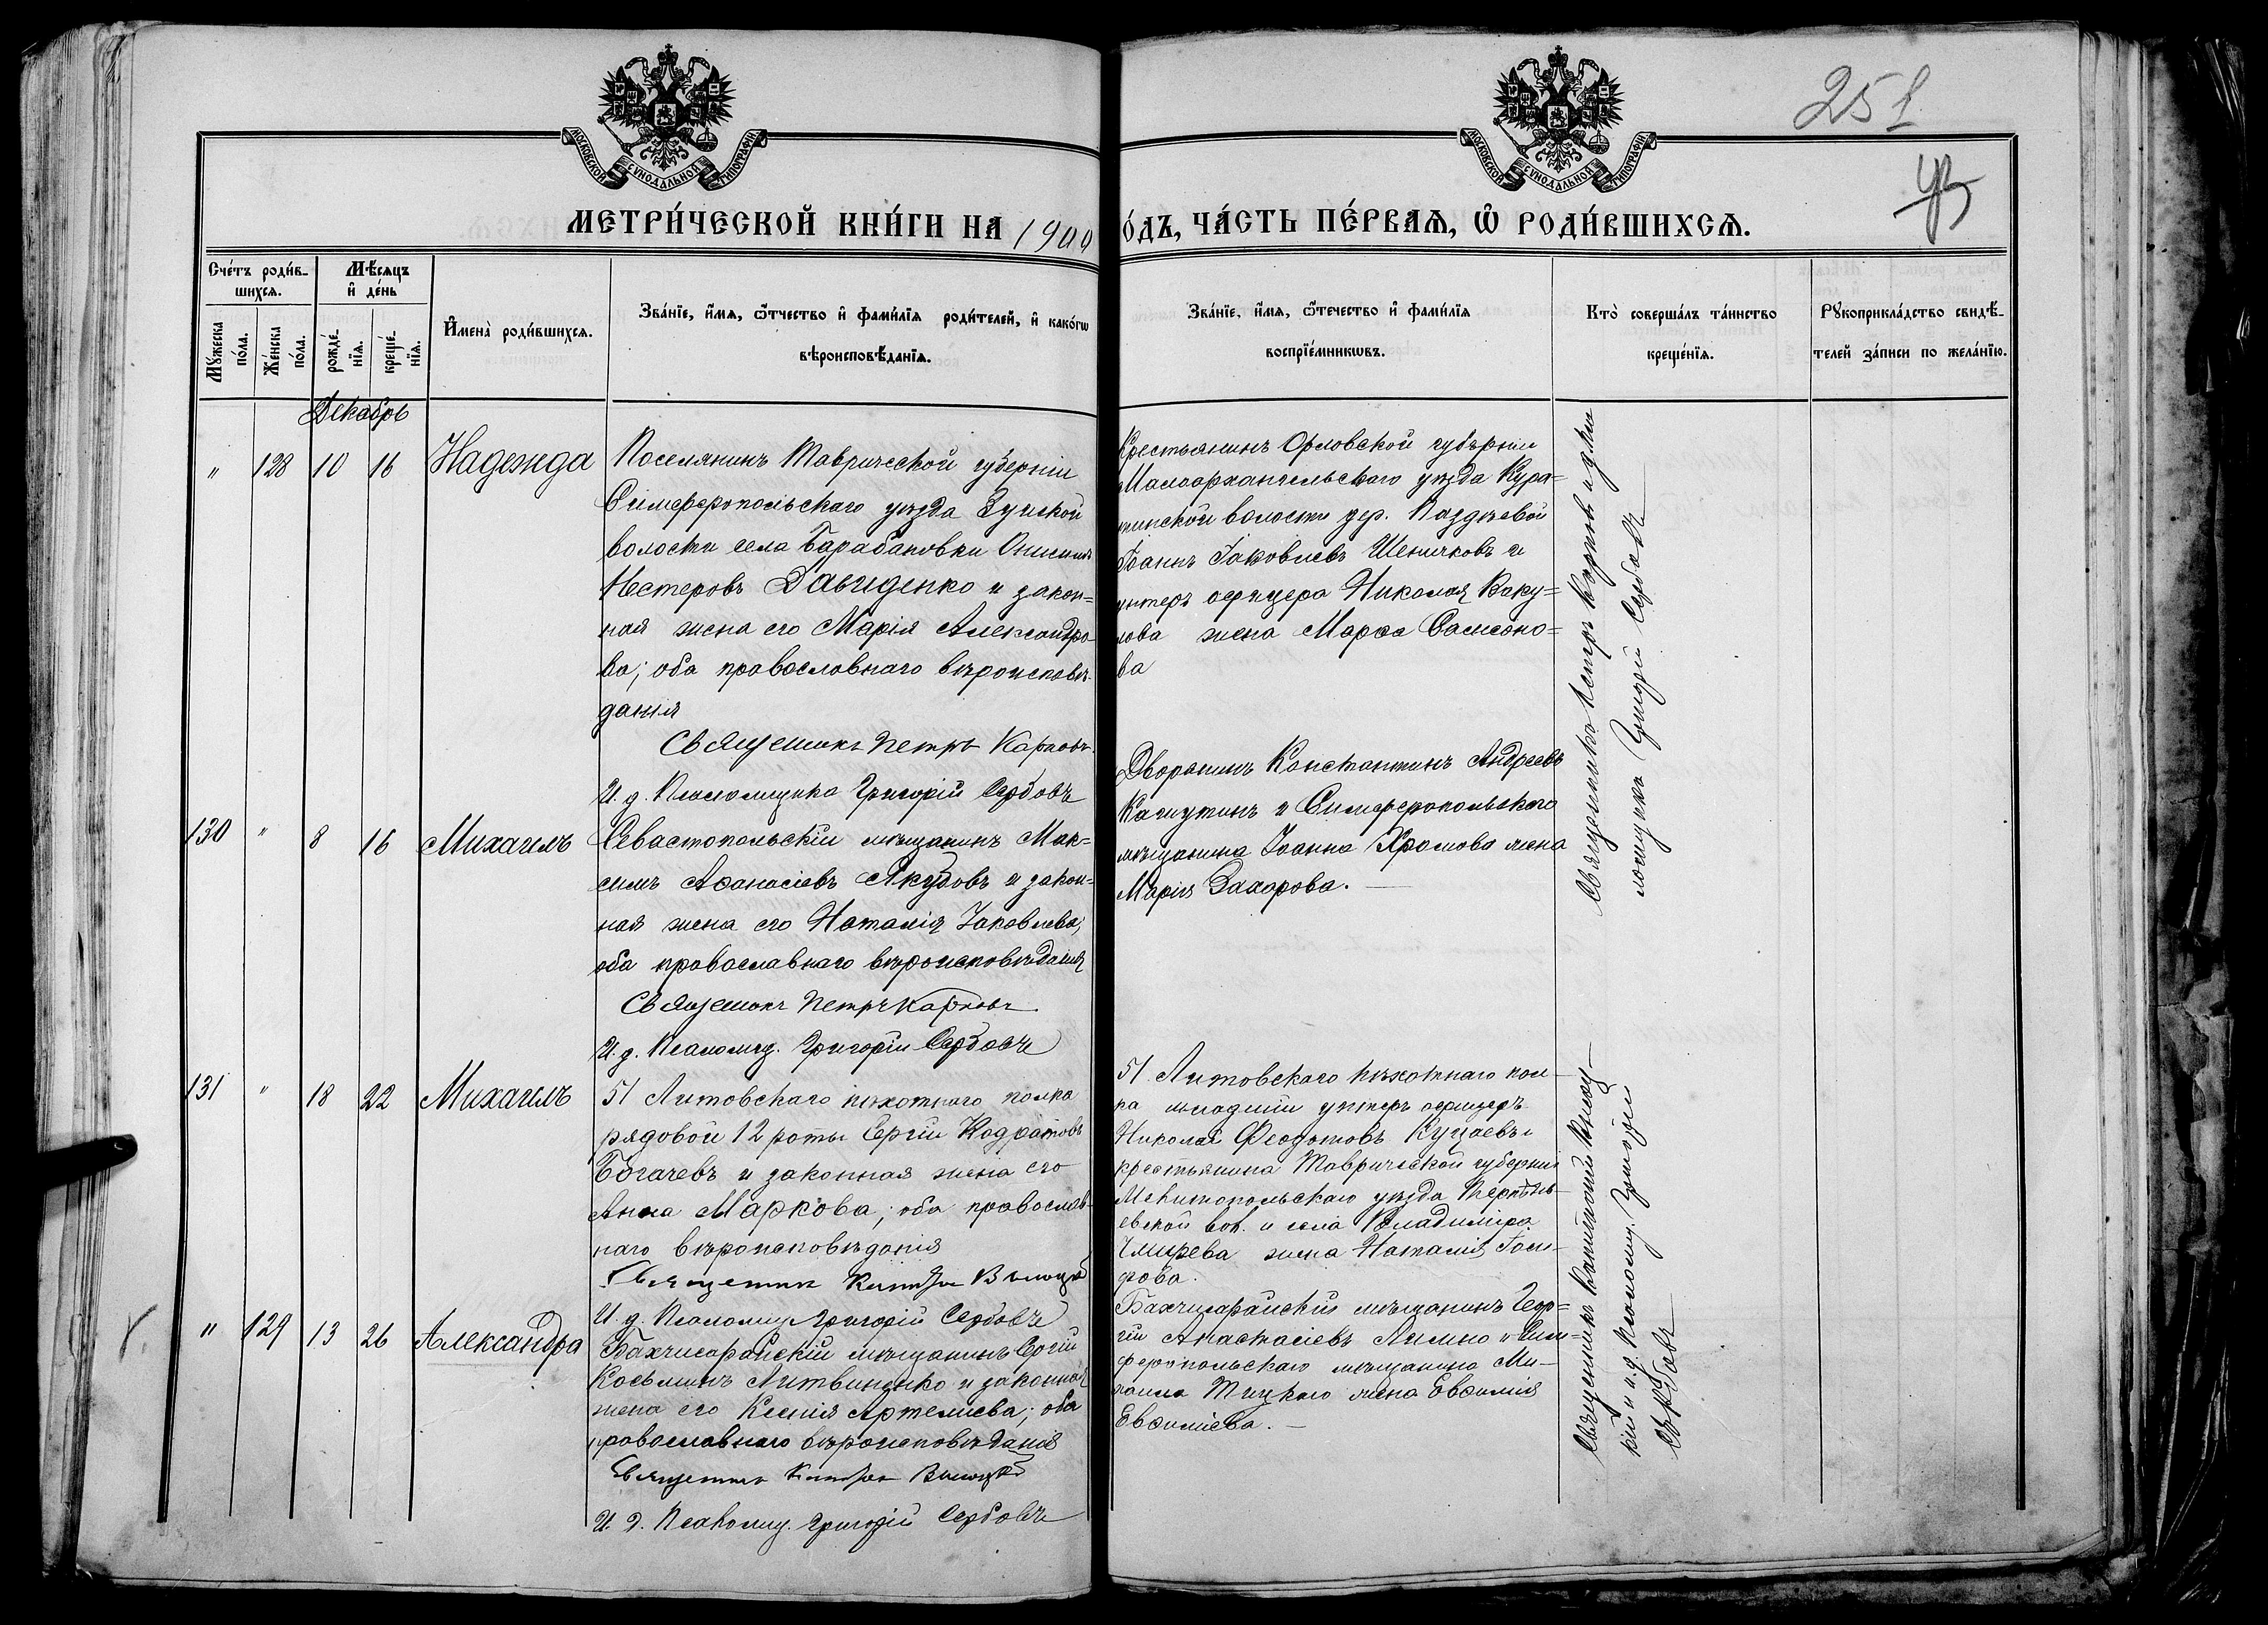 251
МОСКОВСКОЙ СѴНОДАЛЬНОЙ ТИПОГРАФІИ
МОСКОВСКОЙ СѴНОДАЛЬНОЙ ТИПОГРАФІИ
МЕТРИ́ЧЕСКОЙ КНИ́ГИ НА 1900
О́ДЪ, ЧА́СТЬ ПЕ́РВАѦ, Ѽ РОДИ́ВШИХСѦ.
Сче́тъ роди́в-
шихсѧ.
Мѣ́сѧцъ
и҆ де́нь
Мꙋ́жеска
по́ла.
Же́нска
по́ла.
рожде́-
нїѧ.
креще́-
нїѧ.
И҆мена̀ роди́вшихсѧ.
Зва́нїе, и҆́мѧ, ѻ҆́тчество и҆ фами́лїѧ роди́телей, и҆ како́гѡ
вѣроисповѣ́данїѧ.
Зва́нїе, и҆́мѧ, ѻ҆́течество и҆ фами́лїѧ
воспрїе́мникѡвъ.
Кто̀ соверша́лъ та́инство
креще́нїѧ.
Рꙋкоприкла́дство свидѣ́-
телей за́писи по жела́нїю.
Декабрь
" 128 10 16 Надежда
Поселянинъ Таврической губерніи
Симферопольскаго уѣзда Зуйской
волости села Барабановки Онисимъ
Нестеровъ Давиденко и закон=
ная жена его Марія Александро-
ва; оба православнаго вѣроисповѣ-
данія
Священникъ Петръ Карповъ
И. д. Псаломщика Григорій Сербовъ
Крестьянинъ Орловской губерніи
Малоархангельскаго уѣзда Кура=
кинской волости дер. Паздѣевой
Іоаннъ Іаковлевъ Шеничковъ и
унтеръ офицера Николая Ваку=
лова жена Марѳа Самсоно=
ва
Священникъ Петръ Карповъ и д. Пса
ломщика Григорій Сербовъ
130 " 8 16 Михаилъ
Севастопольскій мѣщанинъ Мак=
симъ Аѳанасіевъ Якубовъ и закон=
ная жена его Наталія Іаковлева;
оба православнаго вѣроисповѣданія
Священникъ Петръ Карповъ
И. д. Псаломщ. Григорій Сербовъ
Дворянинъ Константинъ Андреевъ
Качутинъ и Симферопольскаго
мѣщанина Іоанна Хромова жена
Марія Захарова.
131 " 18 22 Михаилъ
51 Литовскаго пѣхотнаго полка
рядовой 12 роты Сергій Кодратовъ
Богачевъ и законная жена его
Анна Маркова; оба православ-
наго вѣроисповѣданія
Священникъ
И. д. Псаломщ. Григорій Сербовъ
51 Литовскаго пѣхотнаго пол-
ка младшій унтеръ офицеръ
Николай Феодотовъ Куцаевъ и
крестьянина Таврической губерніи
Мелитопольскаго уѣзда
евской вол. и села Владиміра
жена Наталія
рова.
Священникъ
и и. д. Псаломщ. Григорій
Сербовъ
" 129 13 26 Александра
Бахчисарайскій мѣщанинъ Сергій
Косьминъ Литвиненко и законная
жена его Ксенія Артемиева; оба
православнаго вѣроисповѣданія
Священникъ
И. д. Псаломщ. Григорій Сербовъ
Бахчисарайскій мѣщанинъ Геор=
гій Анастасіевъ Лимно и Сим=
феропольскаго мѣщанина Ми-
хаила Тицкаго жена Евѳимія
Евѳиміева.